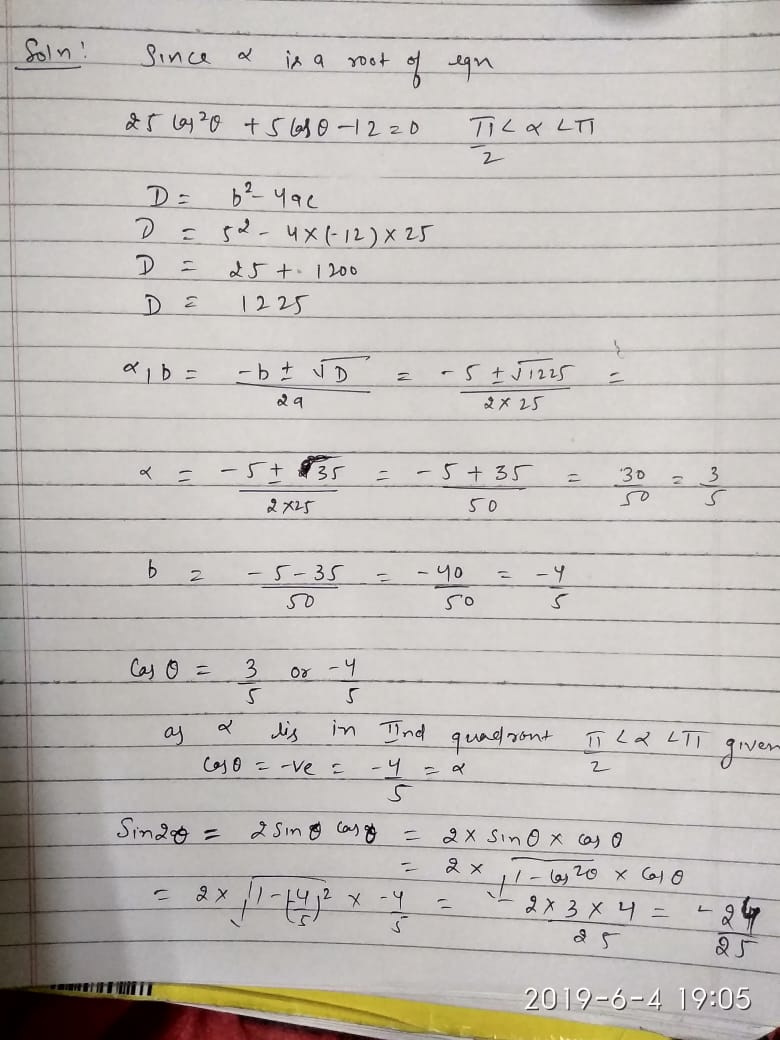 Soln: Since α is a root of eqn
25 cos²θ + 5 cosθ - 12 = 0 π/2 < α < π
D = b² - 4ac
D = 5² - 4 × (-12) × 25
D = 25 + 1200
D = 1225
α, b = (-b ± √D)/2a = (-5 ± √1225)/(2 × 25) =
α = (-5 ± 35)/(2 × 25) = (-5 + 35)/50 = 30/50 = 3/5
b = (-5 - 35)/50 = -40/50 = -4/5
Cos θ = 3/5 or -4/5
as α lis in IInd quadront π/2 < α < π given
Cosθ = -ve = -4/5 = α
Sin2θ = 2 sinθ cosθ = 2 × sinθ × cosθ
= 2 × √(1 - cos²θ) × cosθ
= 2 × √(1 - (-4/5)²) × -4/5 = -(2 × 3 × 4)/25 = -24/25
2019-6-4 19:05